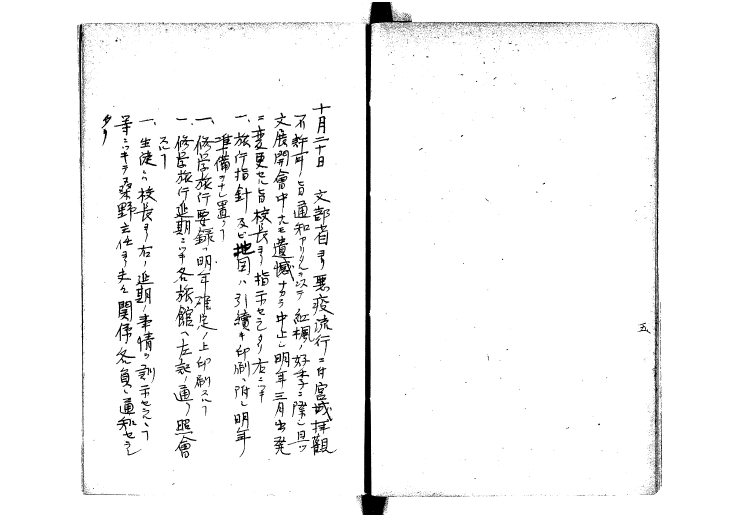 五
十月二十日 文部省ヨリ悪疫流行ニ付宮城拝観
不許可ノ旨通知アリタルヲ以テ紅楓ノ好季ニ際シ且ツ
文展開會中ナルモ遺憾ナカラ中止シ明年三月出発
ニ変更セル旨校長ヨリ指示セラレタリ右ニツキ
一、旅行指針及ビ地図ハ引續キ印刷ニ附シ明年ノ
準備ヲナシ置クコト
一、修学旅行要録ハ明年確定ノ上印刷スルコト
一、修学旅行延期ニツキ各旅館ヘ左記ノ通リ照會
スルコト
一、生徒ヘハ校長ヨリ右ノ延期ノ事情ヲ訓示セラルヽコト
等ニツキテ桑野主任ヨリ夫々関係各員ニ通知セラレ
タリ